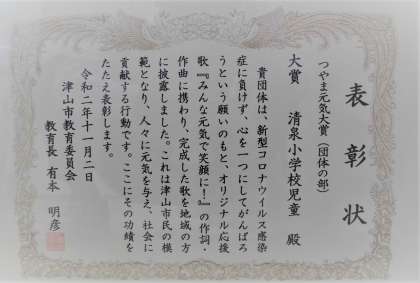 表彰状
つやま元気大賞（団体の部）
大賞　清泉小学校児童　殿
貴団体は、新型コロナウイルス感染
症に負けず、心を一つにしてがんばろ
うという願いのもと、オリジナル応援
歌『みんな元気で笑顔に！』の作詞・
作曲に携わり、完成した歌を地域の方
に披露しました。これは津山市民の模
範となり、人々に元気を与え、社会に
貢献する行動です。ここにその功績を
たたえ表彰します。
令和二年十一月二日
津山市教育委員会
教育長　有本　明彦